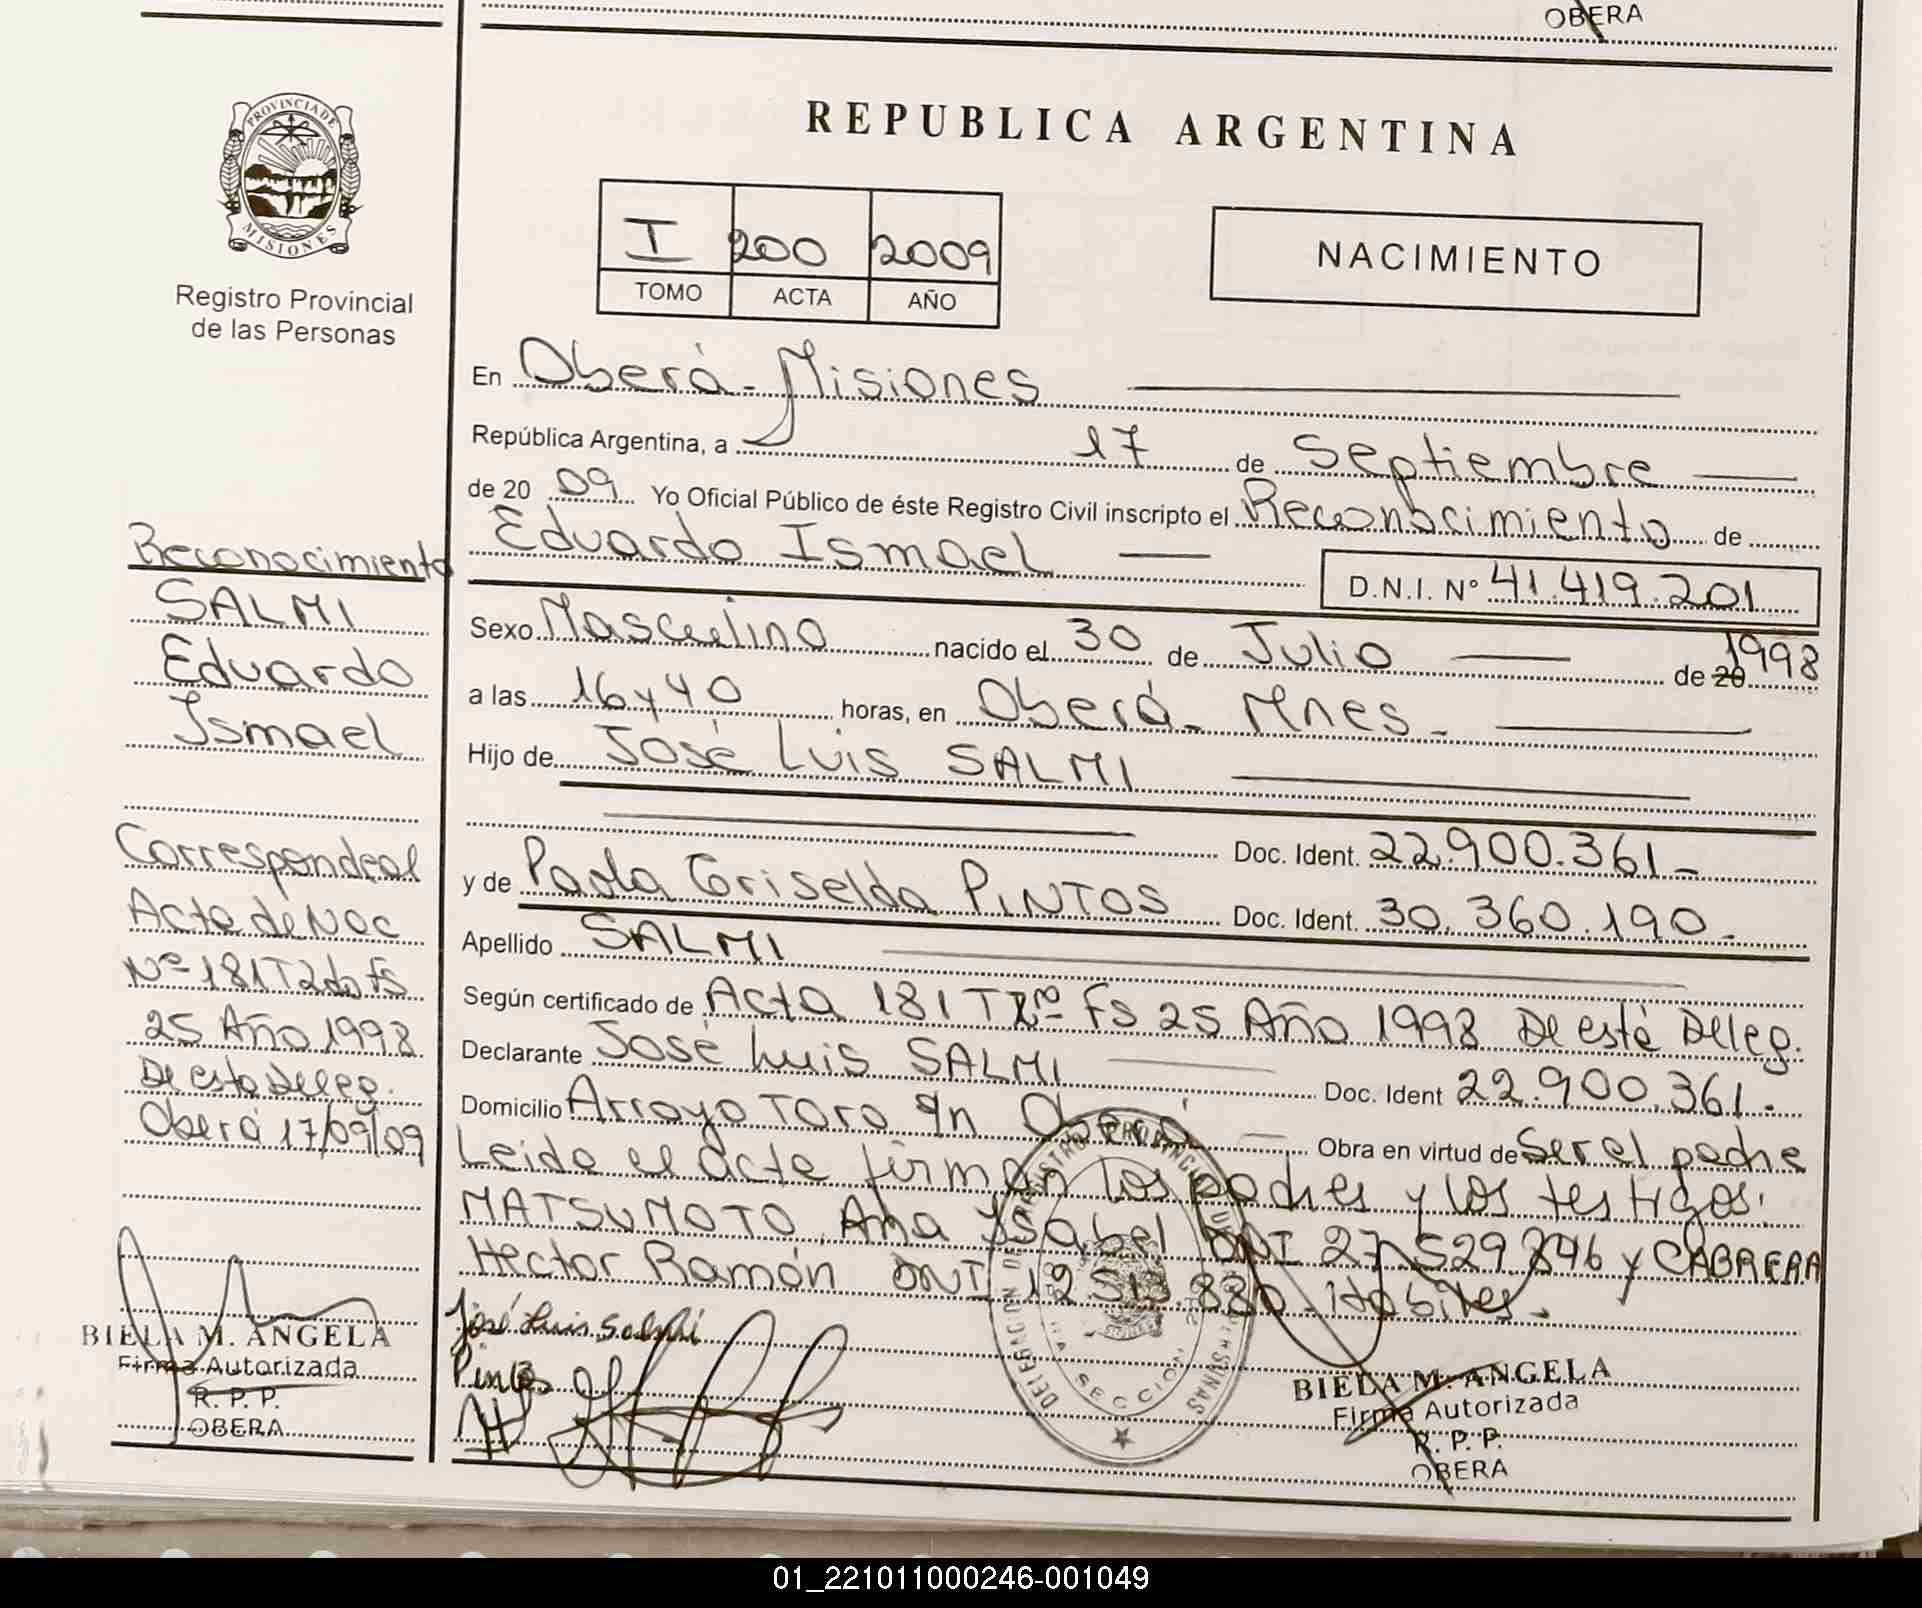 OBERA
PROVINCIA DE
MISIONES
Registro Provincial
de las Personas
REPUBLICA ARGENTINA
I 200 2009
TOMO ACTA AÑO
NACIMIENTO
En Oberá - Misiones
República Argentina, a 17 de Septiembre
de 20 09 Yo Oficial Público de éste Registro Civil inscripto el Reconocimiento de
Eduardo Ismael D.N.I. Nº 41.419.201
Sexo Masculino nacido el 30 de Julio de 20 1998
a las 16 y 40 horas, en Oberá - Mnes.
Hijo de José Luis SALMI
Doc. Ident. 22.900.361-
y de Paola Griselda PINTOS Doc. Ident. 30.360.190-
Apellido SALMI
Según certificado de Acta 181 Fs 25 Año 1998 De esté Deleg.
Declarante José Luis SALMI Doc. Ident 22.900.361.-
Domicilio Arroyo Toro s/n Oberá Obra en virtud de Ser el padre
Leida el acta firman los padres y los testigos:
MATSUMOTO, Ana Ysabel DNI y CABRERA
Hector Ramón DNI Habiles.-
José Luis Salmi
Pintos
BIELA M. ANGELA
Firma Autorizada
R. P. P.
OBERA
Reconocimiento
SALMI
Eduardo
Ismael
Corresponde al
Acta de Nac
Nº 181 T 2do fs
25 Año 1998
De esta Deleg.
Oberá 17/09/09
BIELA M. ANGELA
Firma Autorizada
R. P. P.
OBERA
SECCION
01_221011000246-001049